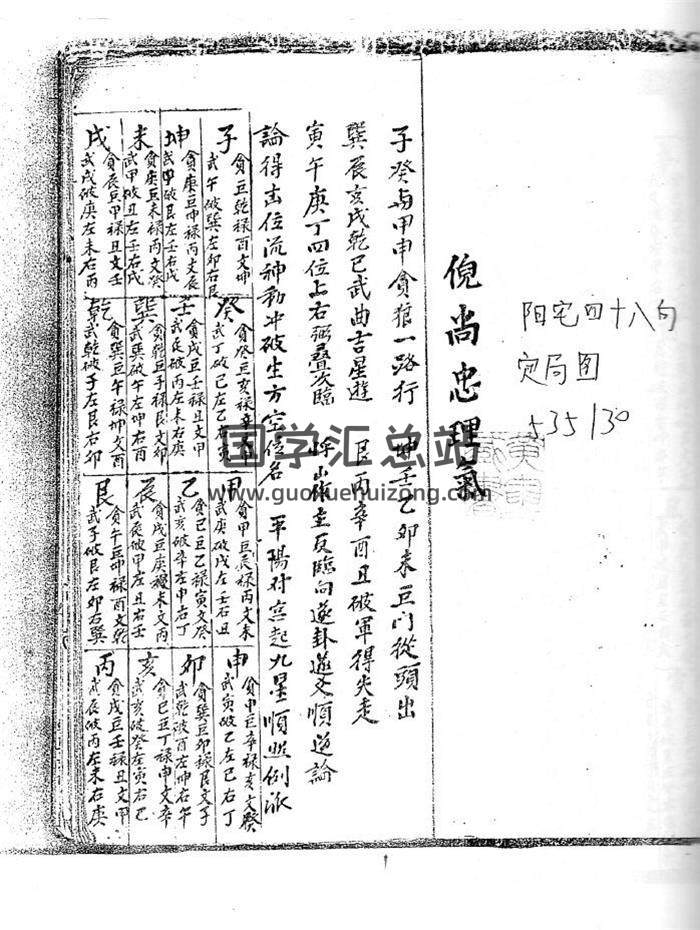 阳宅四十八句
定局图
535130
倪尚忠理氣
子癸与甲申貪狼一路行 坤壬乙卯未巨门從頭出
巽辰亥戌乾巳武曲吉星遊 艮丙辛酉丑破軍得尖走
寅午庚丁四位上右弼叠次臨 將山作主反臨向逐卦 文順逆論
論得吉位流神動冲破生方空位名 平陽对宫起九星順照例派
子 貪巨乾禄酉文坤
武午破巽左卯右艮
癸 貪癸巨亥禄辛文
武丁破己左乙右寅
甲 貪甲巨辰禄丙文未
武庚破戌左壬右丑
申 貪申巨辛禄亥文癸
武寅破乙左巳右丁
坤 貪 巨坤禄丙文辰
武甲破艮左壬右戌
壬 貪戌巨壬禄丑文甲
武辰破丙左未右庚
乙 貪巳巨乙禄寅文癸
武亥破辛左申右丁
卯 貪巽巨卯禄艮文子
武乾破酉左坤右午
未 貪庚巨未禄丙文
武甲破丑左壬右戌
巽 貪乾巨 禄子文卯
武巽破午左坤右酉
辰 貪戌巨庚禄未文丙
武辰破甲左丑右壬
亥 貪巳巨丁禄申文辛
武亥破癸左寅右乙
戌 貪辰巨甲禄丑文壬
武戌破庚左未右丙
乾 貪巽巨午禄坤文酉
武乾破子左艮右卯
艮 貪午巨坤禄酉文乾
武子破艮左卯右巽
丙 貪戌巨壬禄丑文甲
武辰破丙左未右庚
国学汇总站
www.guoxuehuizong.com